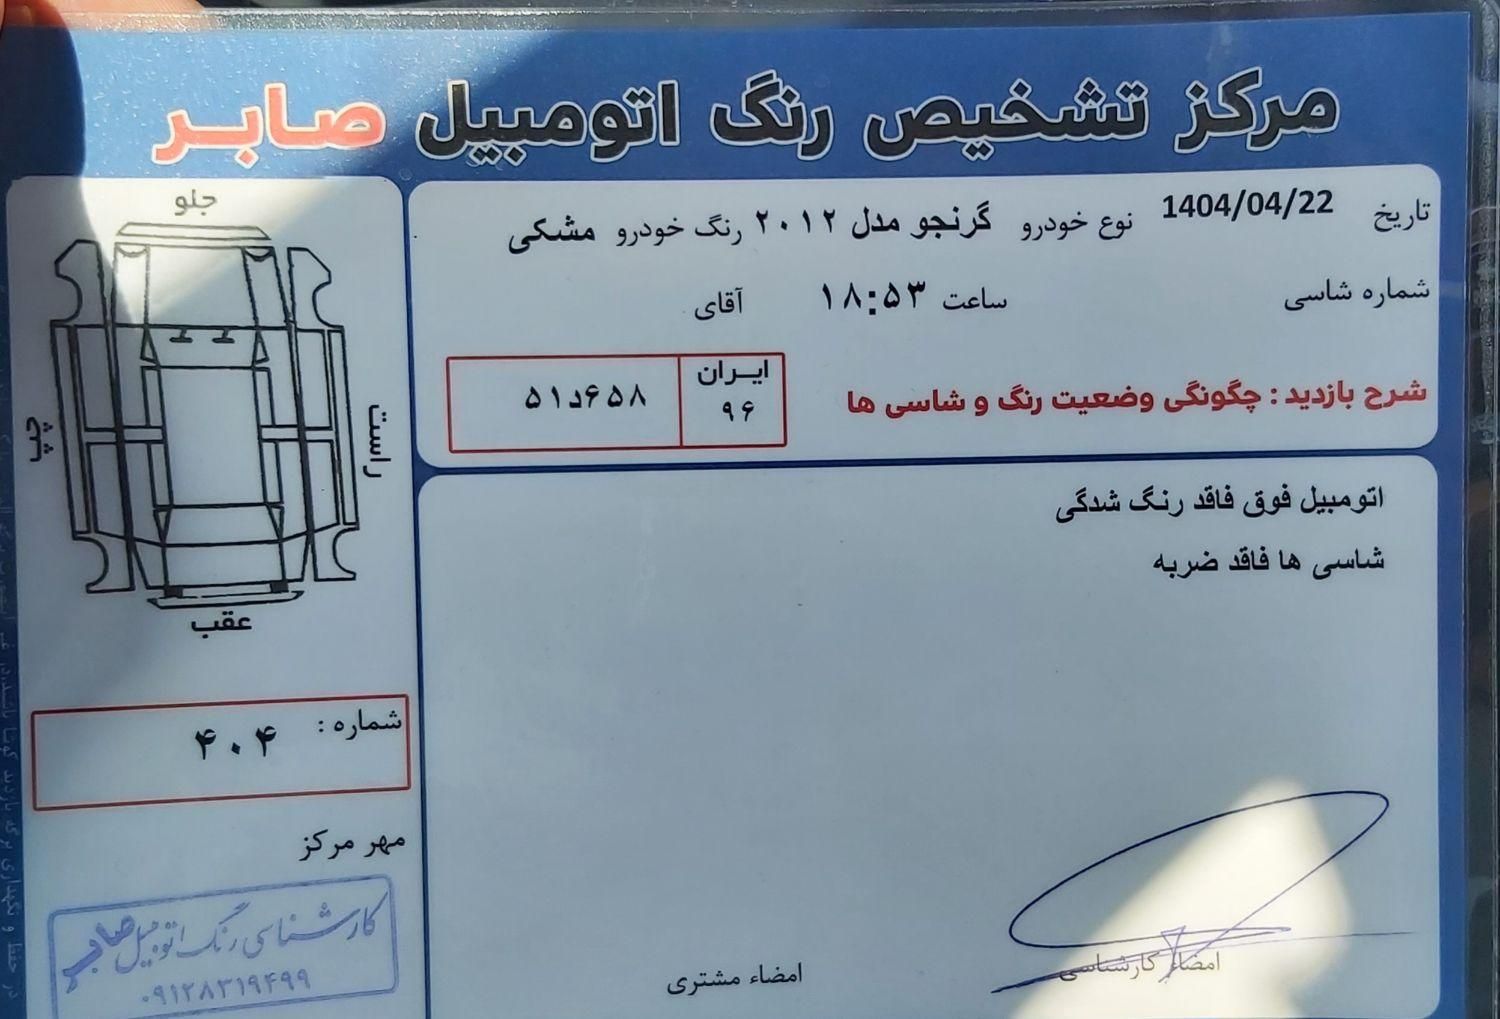 مرکز تشخیص رنگ اتومبیل صابر
تاریخ 1404/04/22 نوع خودرو گرنجو مدل ۲۰۱۲ رنگ خودرو مشکی
شماره شاسی ساعت ۱۸:۵۳ آقای
شرح بازدید : چگونگی وضعیت رنگ و شاسی ها
ایران
۹۶
۶۵۸د۵۱
اتومبیل فوق فاقد رنگ شدگی
شاسی ها فاقد ضربه
امضاء کارشناسی
امضاء مشتری
جلو
راست
چپ
عقب
شماره : ۴۰۴
مهر مرکز
کارشناسی رنگ اتومبیل صابر
۰۹۱۲۸۳۱۹۴۹۹
در حفظ و نگهداری برگه بازدید کوشا باشید